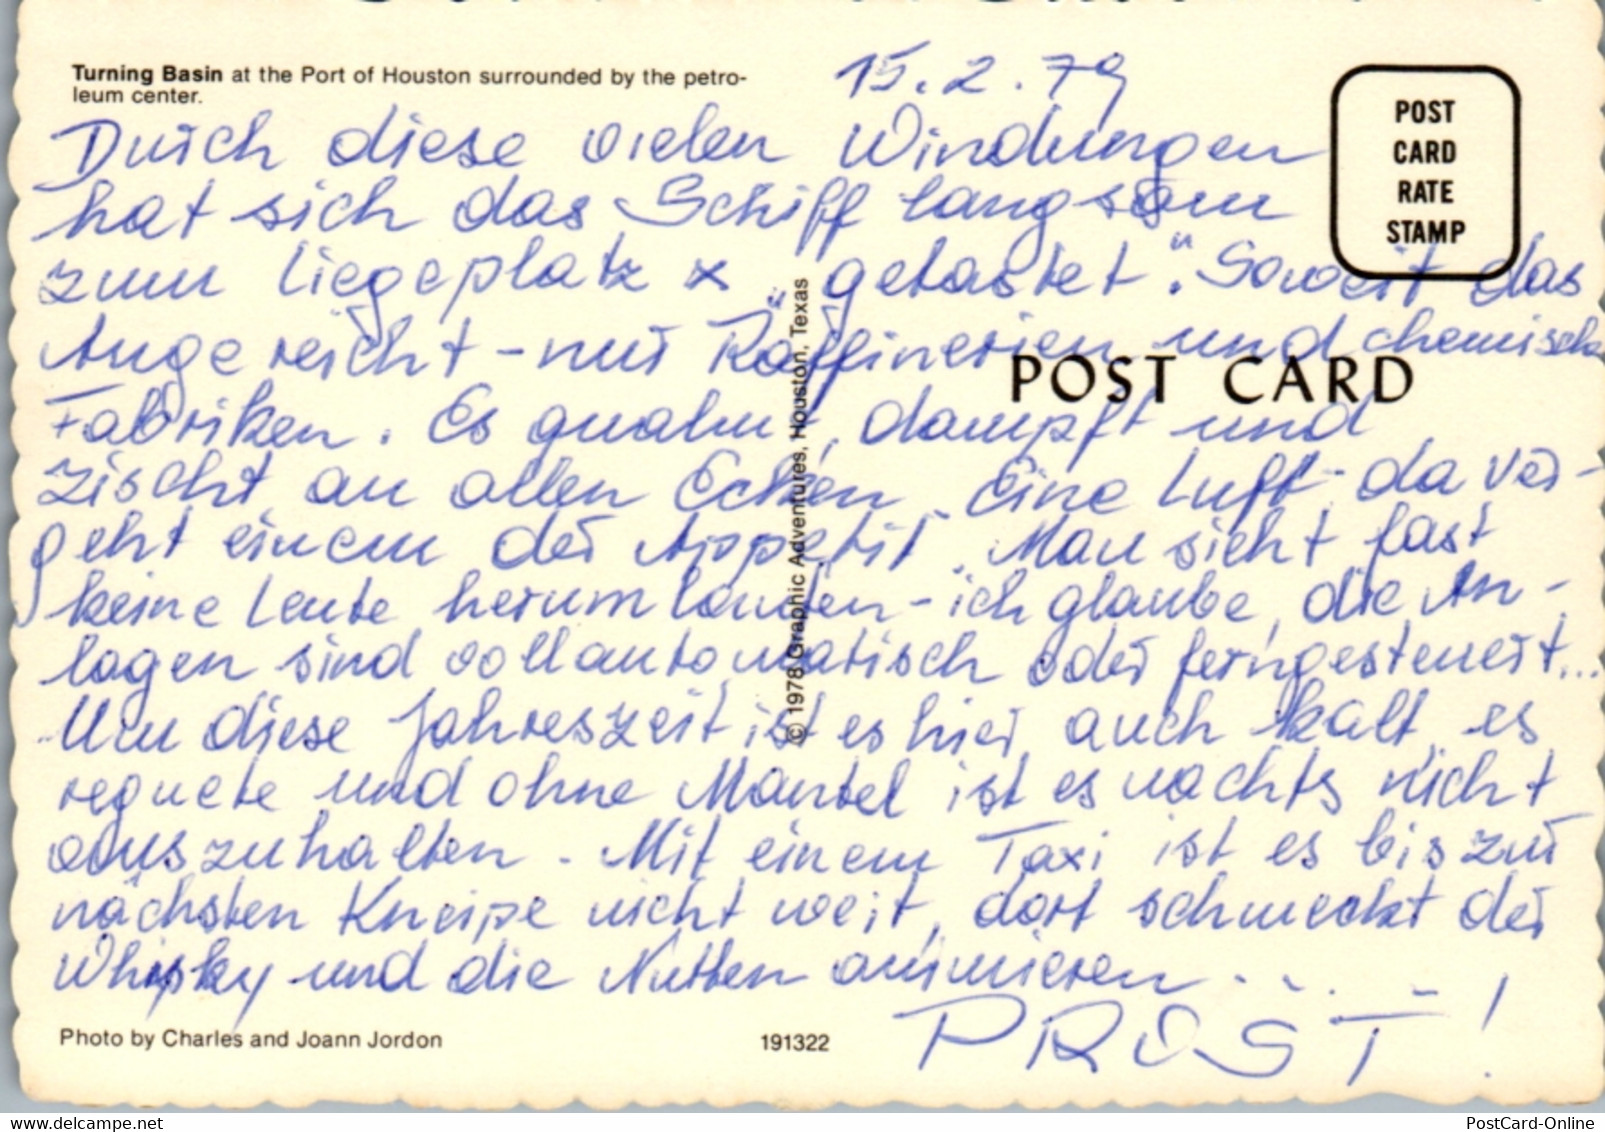 Turning Basin at the Port of Houston surrounded by the petro-
leum center.
15.2.79
POST
CARD
RATE
STAMP
Durch diese vielen Windungen
hat sich das Schiff langsam
zum Liegeplatz x „getastet“. Soweit das
Auge reicht - nur Raffinerien und chemische
Fabriken. Es qualmt, dampft und
zischt an allen Ecken. Eine Luft - da ver-
geht einem der Appetit. Man sieht fast
keine Leute herumlaufen - ich glaube, die An-
lagen sind vollautomatisch oder ferngesteuert...
Um diese Jahreszeit ist es hier auch kalt, es
regnete und ohne Mantel ist es nachts nicht
auszuhalten. Mit einem Taxi ist es bis zur
nächsten Kneipe nicht weit, dort schmeckt der
Whisky und die Nutten animieren . . . . -
PROST!
POST CARD
© 1978 Graphic Adventures, Houston, Texas
Photo by Charles and Joann Jordon
191322
www.delcampe.net
PostCard-Online